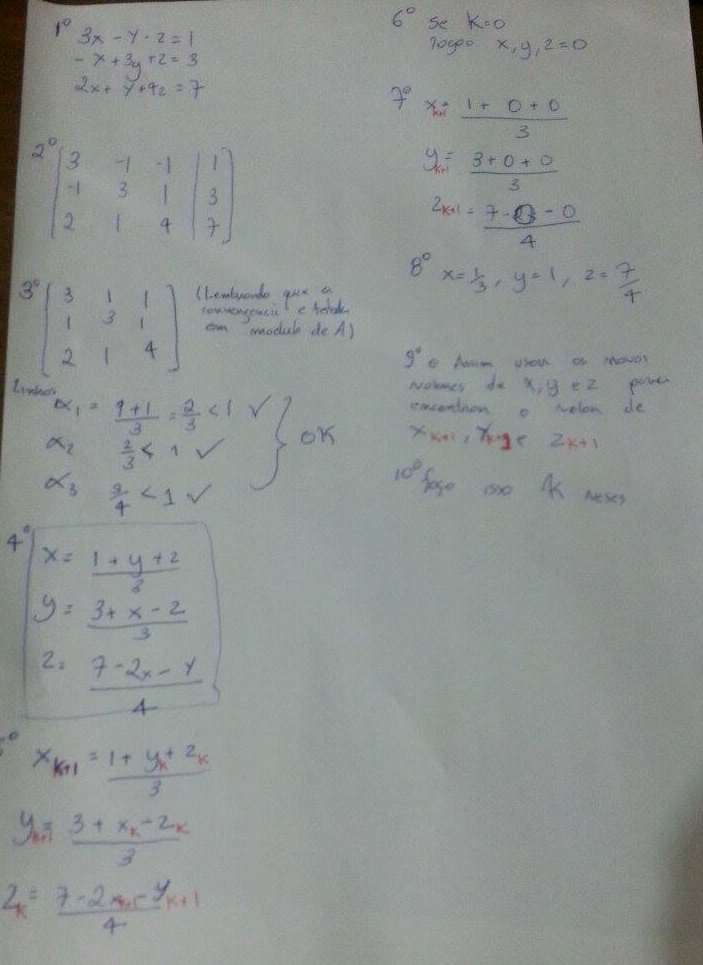 1º 3x - y - z = 1
- x + 3y + z = 3
2x + y + 4z = 7
2º 3 -1 -1 | 1
-1 3 1 | 3
2 1 4 | 7
3º 3 1 1
1 3 1
2 1 4
(Lembrando que a
convergencia e
em modulo de A)
Linhas
α1 = 1+1/3 = 2/3 < 1 ✓
α2 2/3 < 1 ✓
α3 3/4 < 1 ✓
OK
4º x = 1 + y + z / 3
y = 3 + x - z / 3
z = 7 - 2x - y / 4
5º xk+1 = 1 + yk + zk / 3
yk+1 = 3 + xk - zk / 3
zk = 7 - 2xk+1 - yk+1 / 4
6º Se K=0
logo x, y, z = 0
7º xk+1 = 1 + 0 + 0 / 3
yk+1 = 3 + 0 + 0 / 3
zk+1 = 7 - 0 - 0 / 4
8º x = 1/3, y = 1, z = 7/4
9º e Assim usar os novos
valores de x, y e z para
encontrar o valor de
xk+1, yk+1 e zk+1
10º faça isso K vezes